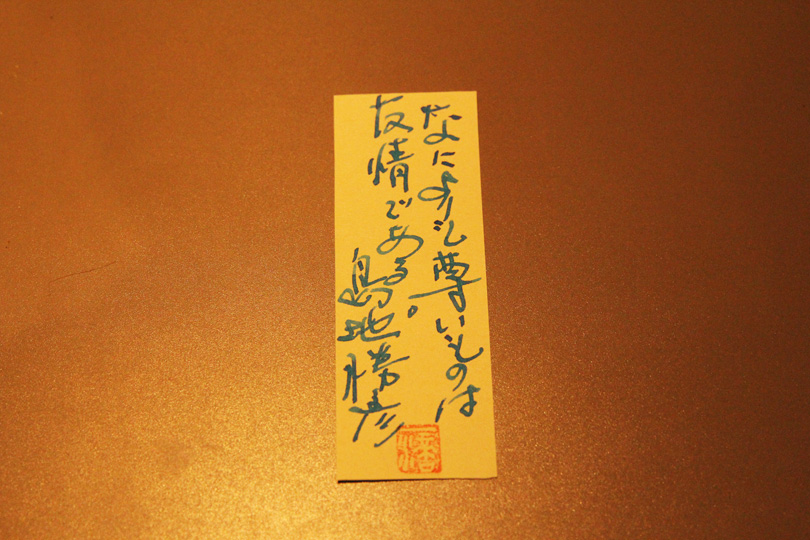 なによりも尊いものは
友情である。
島地勝彦